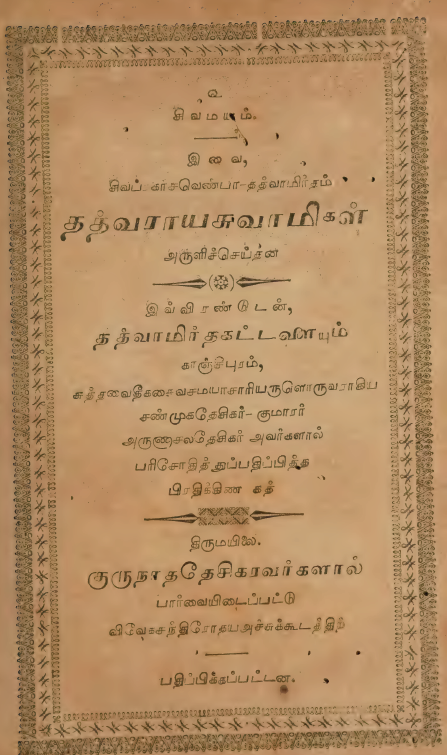 உ
சிவமயம்.
இவை,
சிவப்பிரகாசவெண்பா-தத்வாமிர்தம்
தத்வராயசுவாமிகள்
அருளிச்செய்தன
இவ்விரண்டுடன்,
தத்வாமிர்தகட்டளையும்
காஞ்சிபுரம்,
சுத்தவைதீகசைவசமயாசாரியருளொருவராகிய
சண்முகதேசிகர்-குமாரர்
அருணாசலதேசிகர் அவர்களால்
பரிசோதித்துப்பதிப்பித்த
பிரதிக்கிண
திருமயிலே.
குருநாததேசிகரவர்களால்
பார்வையிடைப்பட்டு
விவேகசந்திரோதயஅச்சுக்கூடத்திற்
பதிப்பிக்கப்பட்டன.